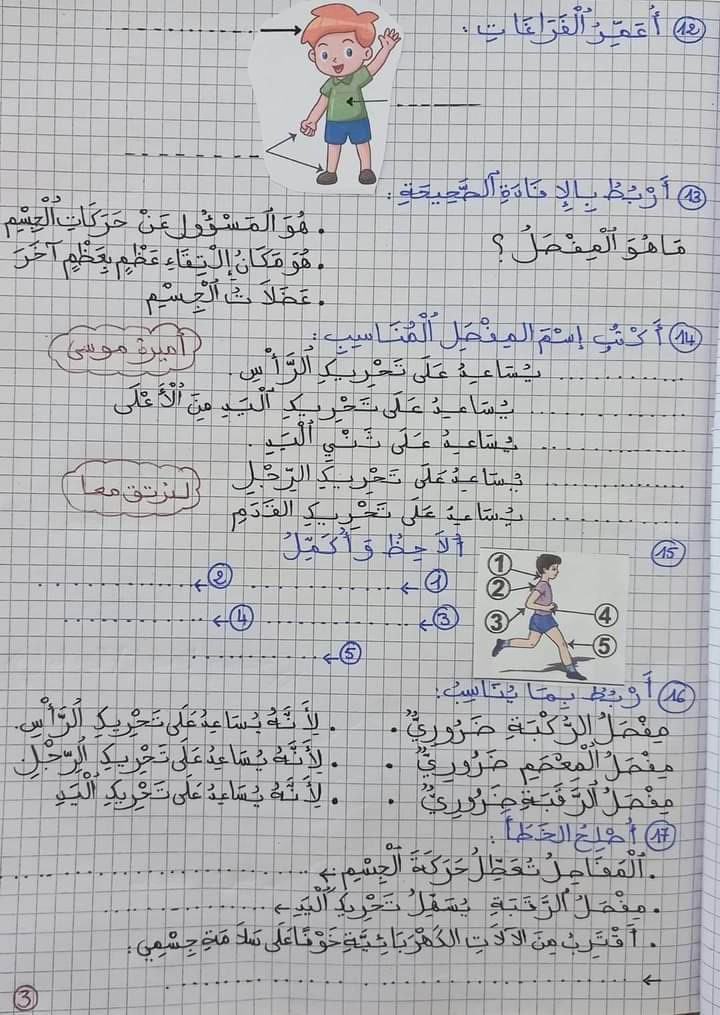 12 أُعَمِّرُ ٱلْفَرَاغَاتِ :
13 أَرْبُطُ بِالإِفَادَةِ ٱلصَّحِيحَةِ :
مَاهُوَ ٱلْمِفْصَلُ ؟
. هُوَ الْمَسْؤُولُ عَنْ حَرَكَاتِ ٱلْجِسْمِ
. هُوَ مَكَانُ إِلْتِقَاءِ عَظْمٍ بِعَظْمٍ آخَرَ
. عَضَلَاتُ ٱلْجِسْمِ
14 أَكْتُبُ إِسْمَ المِفْصَلِ ٱلْمُنَاسِبِ :
أميرة موسى
............ يُسَاعِدُ عَلَى تَحْرِيكِ ٱلرَّأْسِ .
............ يُسَاعِدُ عَلَى تَحْرِيكِ ٱلْيَدِ مِنَ ٱلْأَعْلَى
............ يُسَاعِدُ عَلَى ثَنْيِ ٱلْيَدِ .
............ يُسَاعِدُ عَلَى تَحْرِيكِ الرِّجْلِ
............ يُسَاعِدُ عَلَى تَحْرِيكِ القَدَمِ
لنرتق معا
15 أُلَاحِظُ وَ أُكَمِّلُ
1
2
3
4
5
1 ← ............ 2 ← ............
3 ← ............ 4 ← ............
5 ← ............
16 أَرْبُطُ بِمَا يُنَاسِبُ :
مِفْصَلُ الرُّكْبَةِ ضَرُورِيٌّ . . لِأَنَّهُ يُسَاعِدُ عَلَى تَحْرِيكِ ٱلرَّأْسِ .
مِفْصَلُ ٱلْمِعْصَمِ ضَرُورِيٌّ . . لِأَنَّهُ يُسَاعِدُ عَلَى تَحْرِيكِ ٱلرِّجْلِ .
مِفْصَلُ ٱلرَّقَبَةِ ضَرُورِيٌّ . . لِأَنَّهُ يُسَاعِدُ عَلَى تَحْرِيكِ ٱلْيَدِ
17 أُصْلِحُ الخَطَأَ :
. ٱلْمَفَاصِلُ تُعَطِّلُ حَرَكَةَ ٱلْجِسْمِ ← ............
. مِفْصَلُ ٱلرَّقَبَةِ يُسَهِّلُ تَحْرِيكَ ٱلْيَدِ ← ............
. أَقْتَرِبُ مِنَ الآلَاتِ الكَهْرَبَائِيَّةِ خَوْفًا عَلَى سَلَامَةِ جِسْمِي :
← ............
3